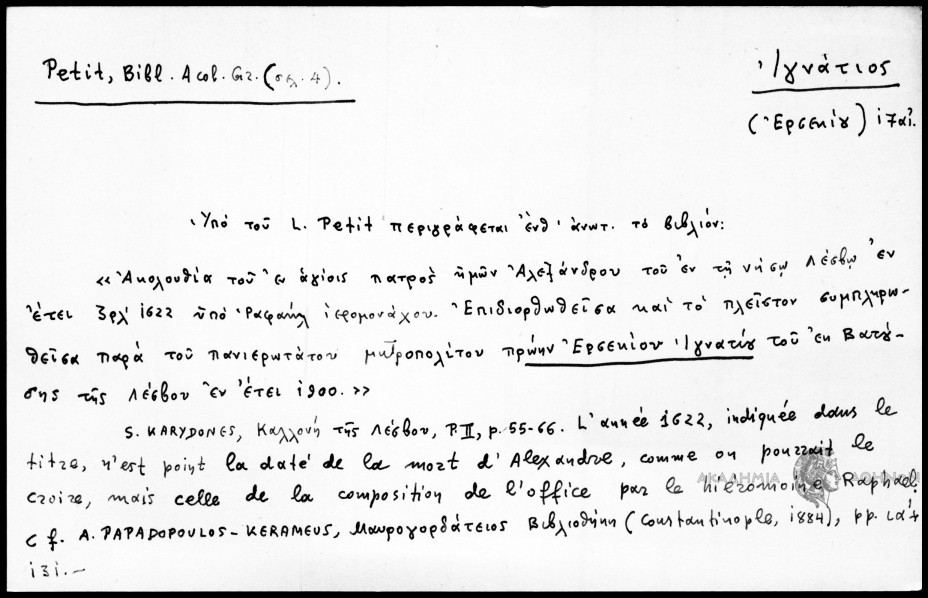 Petit, Bibl. Acol. Gr. (σελ. 4).
Ἰγνάτιος
(Ἐρσεκίου)
Ὑπό τοῦ L. Petit περιγράφεται ἔνθ' ἀνωτ. τό βιβλιόν:
«Ἀκολουθία τοῦ ἐν ἁγίοις πατρός ἡμῶν Ἀλεξάνδρου τοῦ ἐν τῇ νήσῳ Λέσβῳ ἐν
ἔτει ͵ζρλ' 1622 ὑπό Ραφαήλ ἱερομονάχου. Ἐπιδιορθωθεῖσα καί τό πλεῖστον συμπληρω-
θεῖσα παρά τοῦ πανιερωτάτου μητροπολίτου πρώην Ἐρσεκίου Ἰγνατίου τοῦ ἐκ Βατού-
σης τῆς Λέσβου ἐν ἔτει 1900.»
S. KARYDONES, Καλλονή τῆς Λέσβου, P. II, p. 55-66. L'année 1622, indiquée dans le
titre, n'est point la date de la mort d'Alexandre, comme on pourrait le
croire, mais celle de la composition de l'office par le hiéromoine Raphael.
Cf. A. PAPADOPOULOS-KERAMEUS, Μαυρογορδάτειος Βιβλιοθήκη (Constantinople, 1884), pp.
131.-
ΑΚΑΔΗΜΙΑ ΑΘΗΝΩΝ